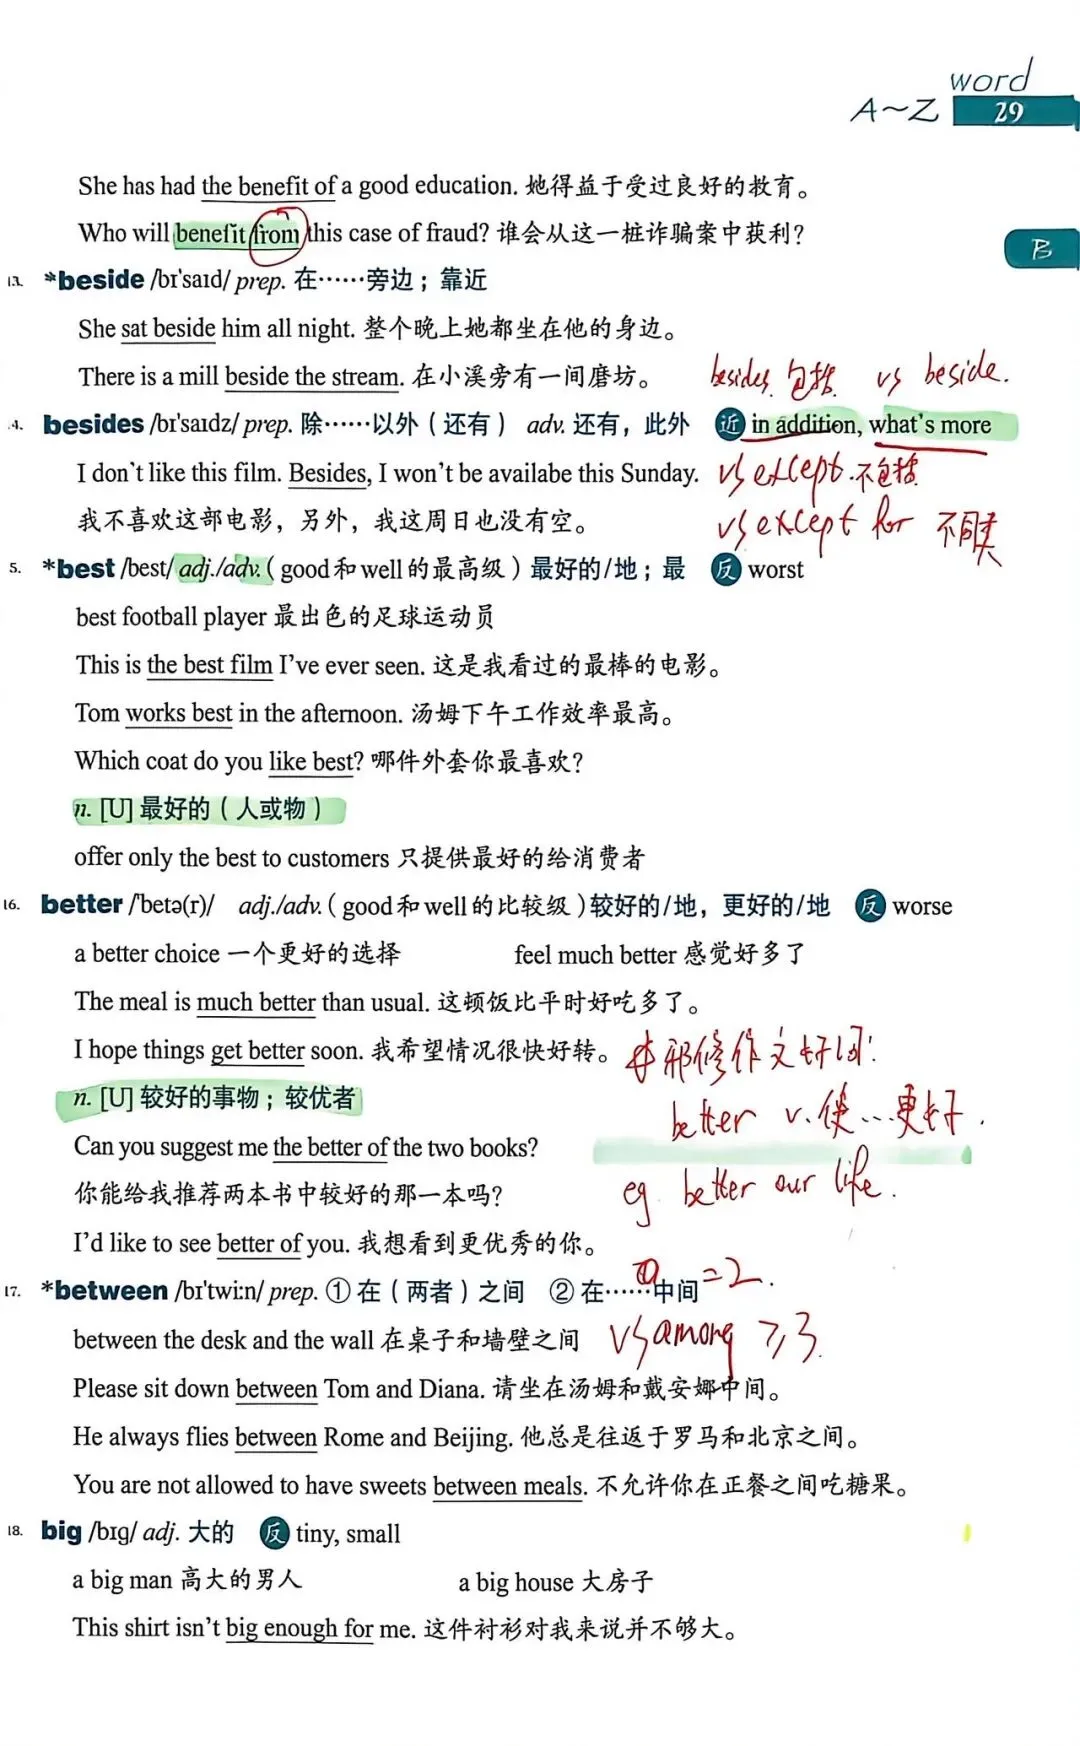 word
A～Z 29
She has had the benefit of a good education. 她得益于受过良好的教育。
Who will benefit from this case of fraud? 谁会从这一桩诈骗案中获利?
B
13. *beside /bɪ'saɪd/ prep. 在……旁边；靠近
She sat beside him all night. 整个晚上她都坐在他的身边。
There is a mill beside the stream. 在小溪旁有一间磨坊。
besides 包括 vs beside.
4. besides /bɪ'saɪdz/ prep. 除……以外（还有） adv. 还有，此外 近 in addition, what's more
I don't like this film. Besides, I won't be availabe this Sunday.
vs except.不包括
我不喜欢这部电影，另外，我这周日也没有空。
vs except for 不同类
5. *best /best/ adj./adv.（good和well的最高级）最好的/地；最 反 worst
best football player 最出色的足球运动员
This is the best film I've ever seen. 这是我看过的最棒的电影。
Tom works best in the afternoon. 汤姆下午工作效率最高。
Which coat do you like best? 哪件外套你最喜欢?
n. [U] 最好的（人或物）
offer only the best to customers 只提供最好的给消费者
16. better /'betə(r)/ adj./adv.（good和well的比较级）较好的/地，更好的/地 反 worse
a better choice 一个更好的选择 feel much better 感觉好多了
The meal is much better than usual. 这顿饭比平时好吃多了。
I hope things get better soon. 我希望情况很快好转。
邪修作文好词:
n. [U] 较好的事物；较优者
better v. 使…更好.
Can you suggest me the better of the two books?
你能给我推荐两本书中较好的那一本吗?
eg. better our life.
I'd like to see better of you. 我想看到更优秀的你。
=2.
17. *between /bɪ'twi:n/ prep. ① 在（两者）之间 ② 在……中间
between the desk and the wall 在桌子和墙壁之间
vs among ≥3.
Please sit down between Tom and Diana. 请坐在汤姆和戴安娜中间。
He always flies between Rome and Beijing. 他总是往返于罗马和北京之间。
You are not allowed to have sweets between meals. 不允许你在正餐之间吃糖果。
18. big /bɪg/ adj. 大的 反 tiny, small
a big man 高大的男人 a big house 大房子
This shirt isn't big enough for me. 这件衬衫对我来说并不够大。